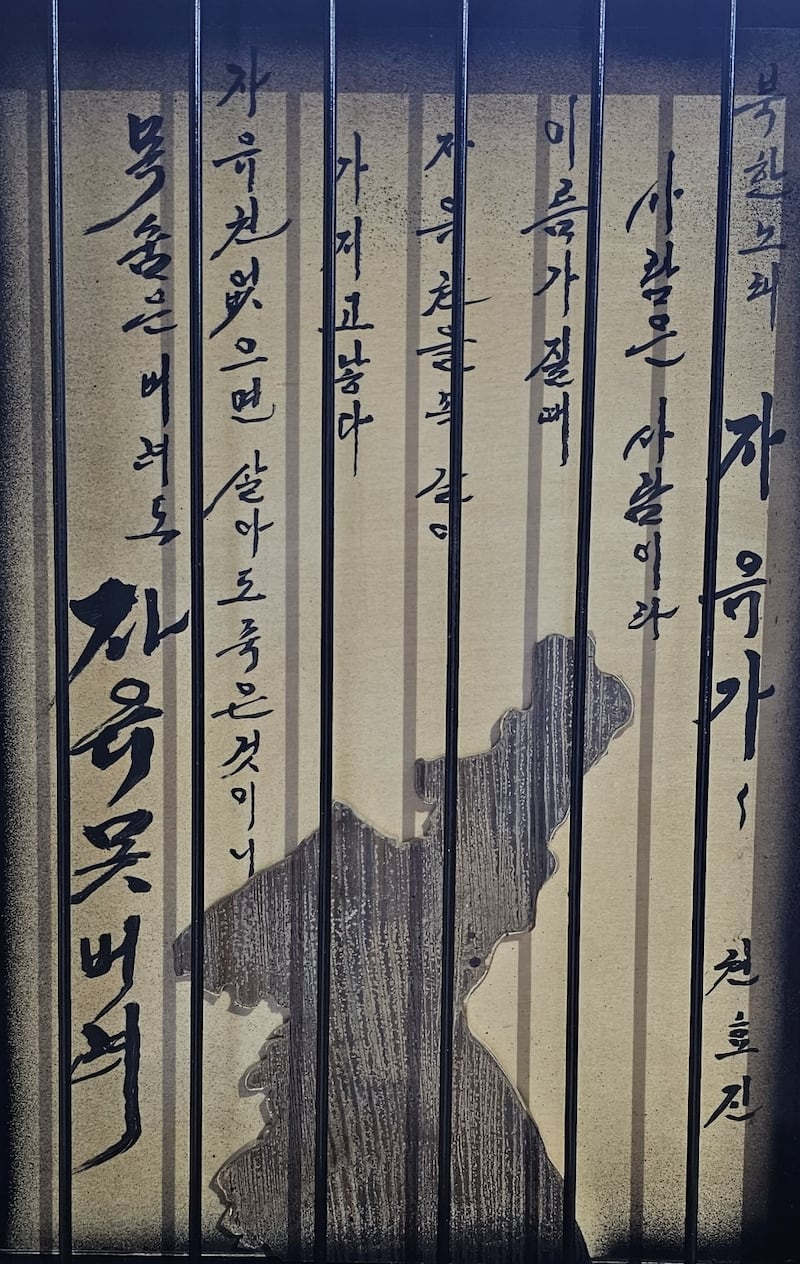 북한노래 자유가 권호진
사람은 사람이라
이름가질때
자유권을똑 같이
가지고낳다
자유권없으면 살아도죽은것이니
목숨은 버려도 자유못버려